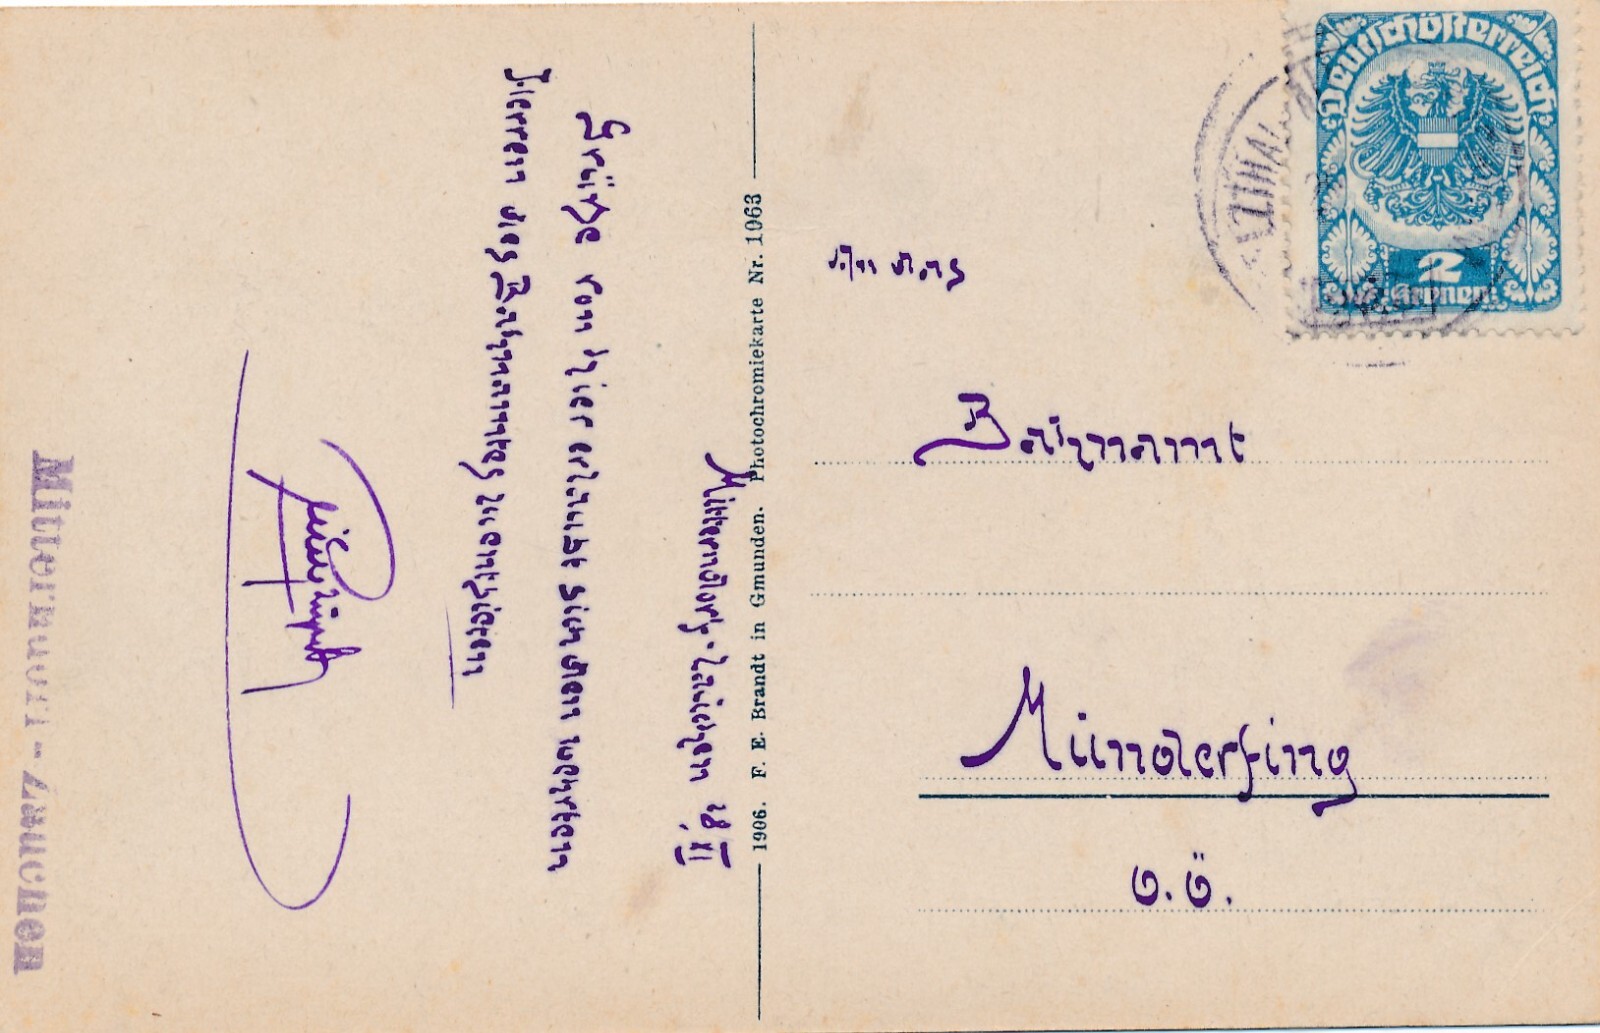 Mitterndorf-Zauchen 18/XI
Grüsse von hier erlaubt sich den werten
Herren des Bahnamtes zu entbieten
Mitterndorf-Zauchen
1906. F. E. Brandt in Gmunden. Photochromiekarte Nr. 1963
Deutschösterreich
2
Kronen
An das
Bahnamt
Munderfing
O.Ö.